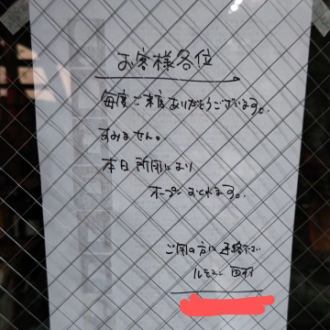 お客様各位
毎度ご来店ありがとうございます。
すみません。
本日所用により
オープンおくれます。
ご用の方は連絡下さい